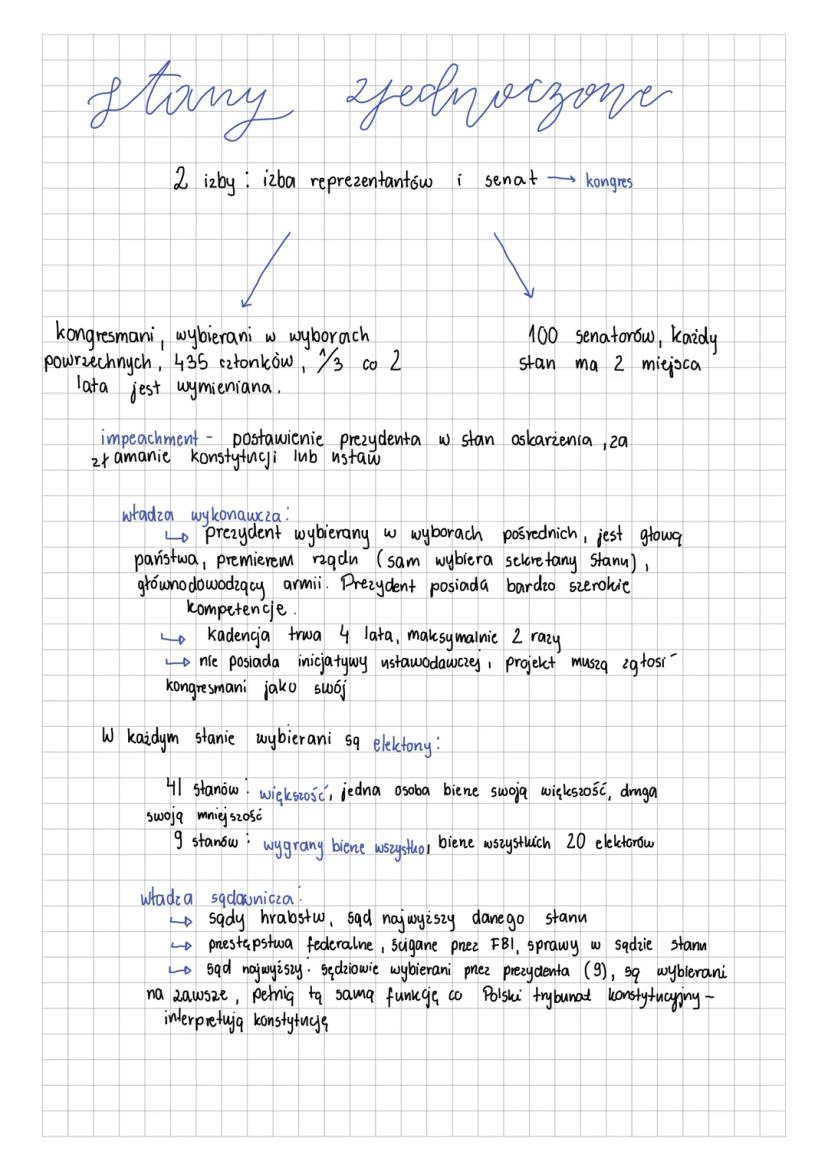 stany zjednoczone
2 izby : izba reprezentantów i senat → kongres
kongresmani, wybierani w wyborach
powrzechnych, 435 członków, 1/3 co 2
lata jest wymieniana.
100 senatorów, każdy
stan ma 2 miejsca
impeachment - postawienie prezydenta w stan oskarżenia, za
złamanie konstytucji lub ustaw
władza wykonawcza:
↳ prezydent wybierany w wyborach pośrednich, jest głową
państwa, premierem rządu (sam wybiera sekretarzy stanu),
głównodowodzący armii. Prezydent posiada bardzo szerokie
kompetencje.
↳ kadencja trwa 4 lata, maksymalnie 2 razy
↳ nie posiada inicjatywy ustawodawczej, projekt muszą zgłosić
kongresmani jako swój
W każdym stanie wybierani są elektorzy:
41 stanów : większość, jedna osoba bierze swoją większość, druga
swoją mniejszość
9 stanów : wygrany bierze wszystko, bierze wszystkich 20 elektorów
władza sądownicza:
↳ sądy hrabstw, sąd najwyższy danego stanu
↳ przestępstwa federalne, ścigane przez FBI, sprawy w sądzie stanu
↳ sąd najwyższy. sędziowie wybierani przez prezydenta (9), są wybierani
na zawsze, pełnią tą samą funkcję co Polski trybunał konstytucyjny -
interpretują konstytucję